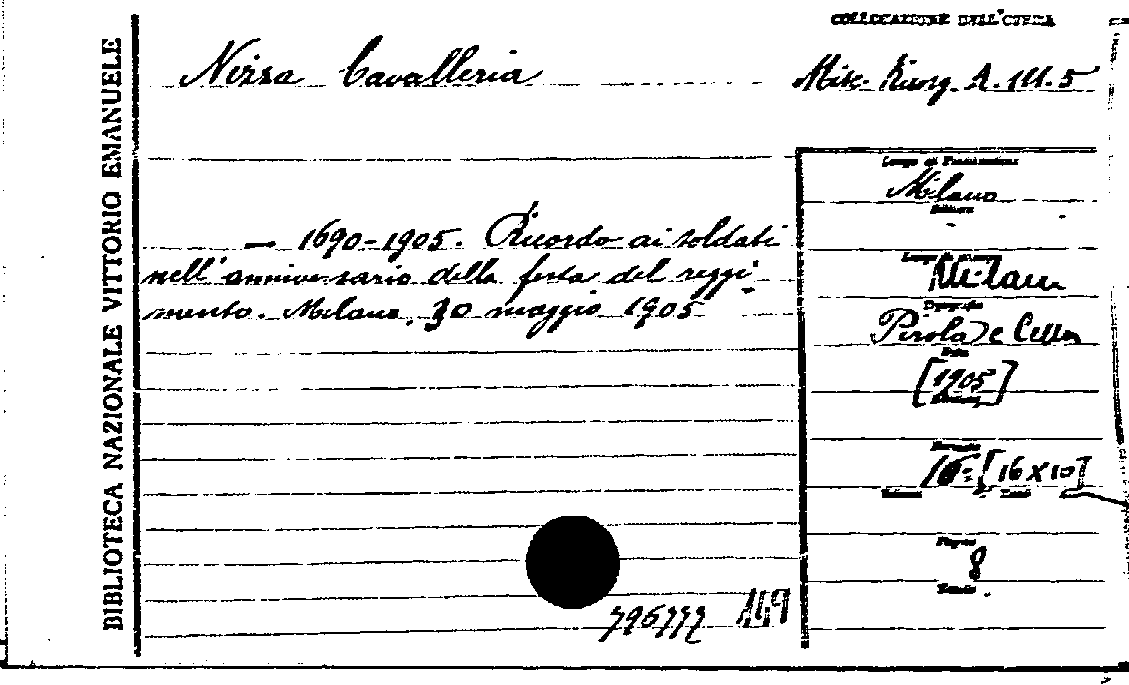 COLLOCAZIONE DELL'OPERA
BIBLIOTECA NAZIONALE VITTORIO EMANUELE
Nizza Cavalleria
Misc. Risorg. A. III. 5
Luogo di Pubblicazione
Milano
Editore
— 1690-1905. Ricordo ai soldati
nell'anniversario della festa del reggi-
mento. Milano, 30 maggio 1905
Milano
Tipografia
Pirola e Cella
Data
[1905]
Formato
16° [16 x 10]
Volume
Pagine
8
Tavole
796777 149